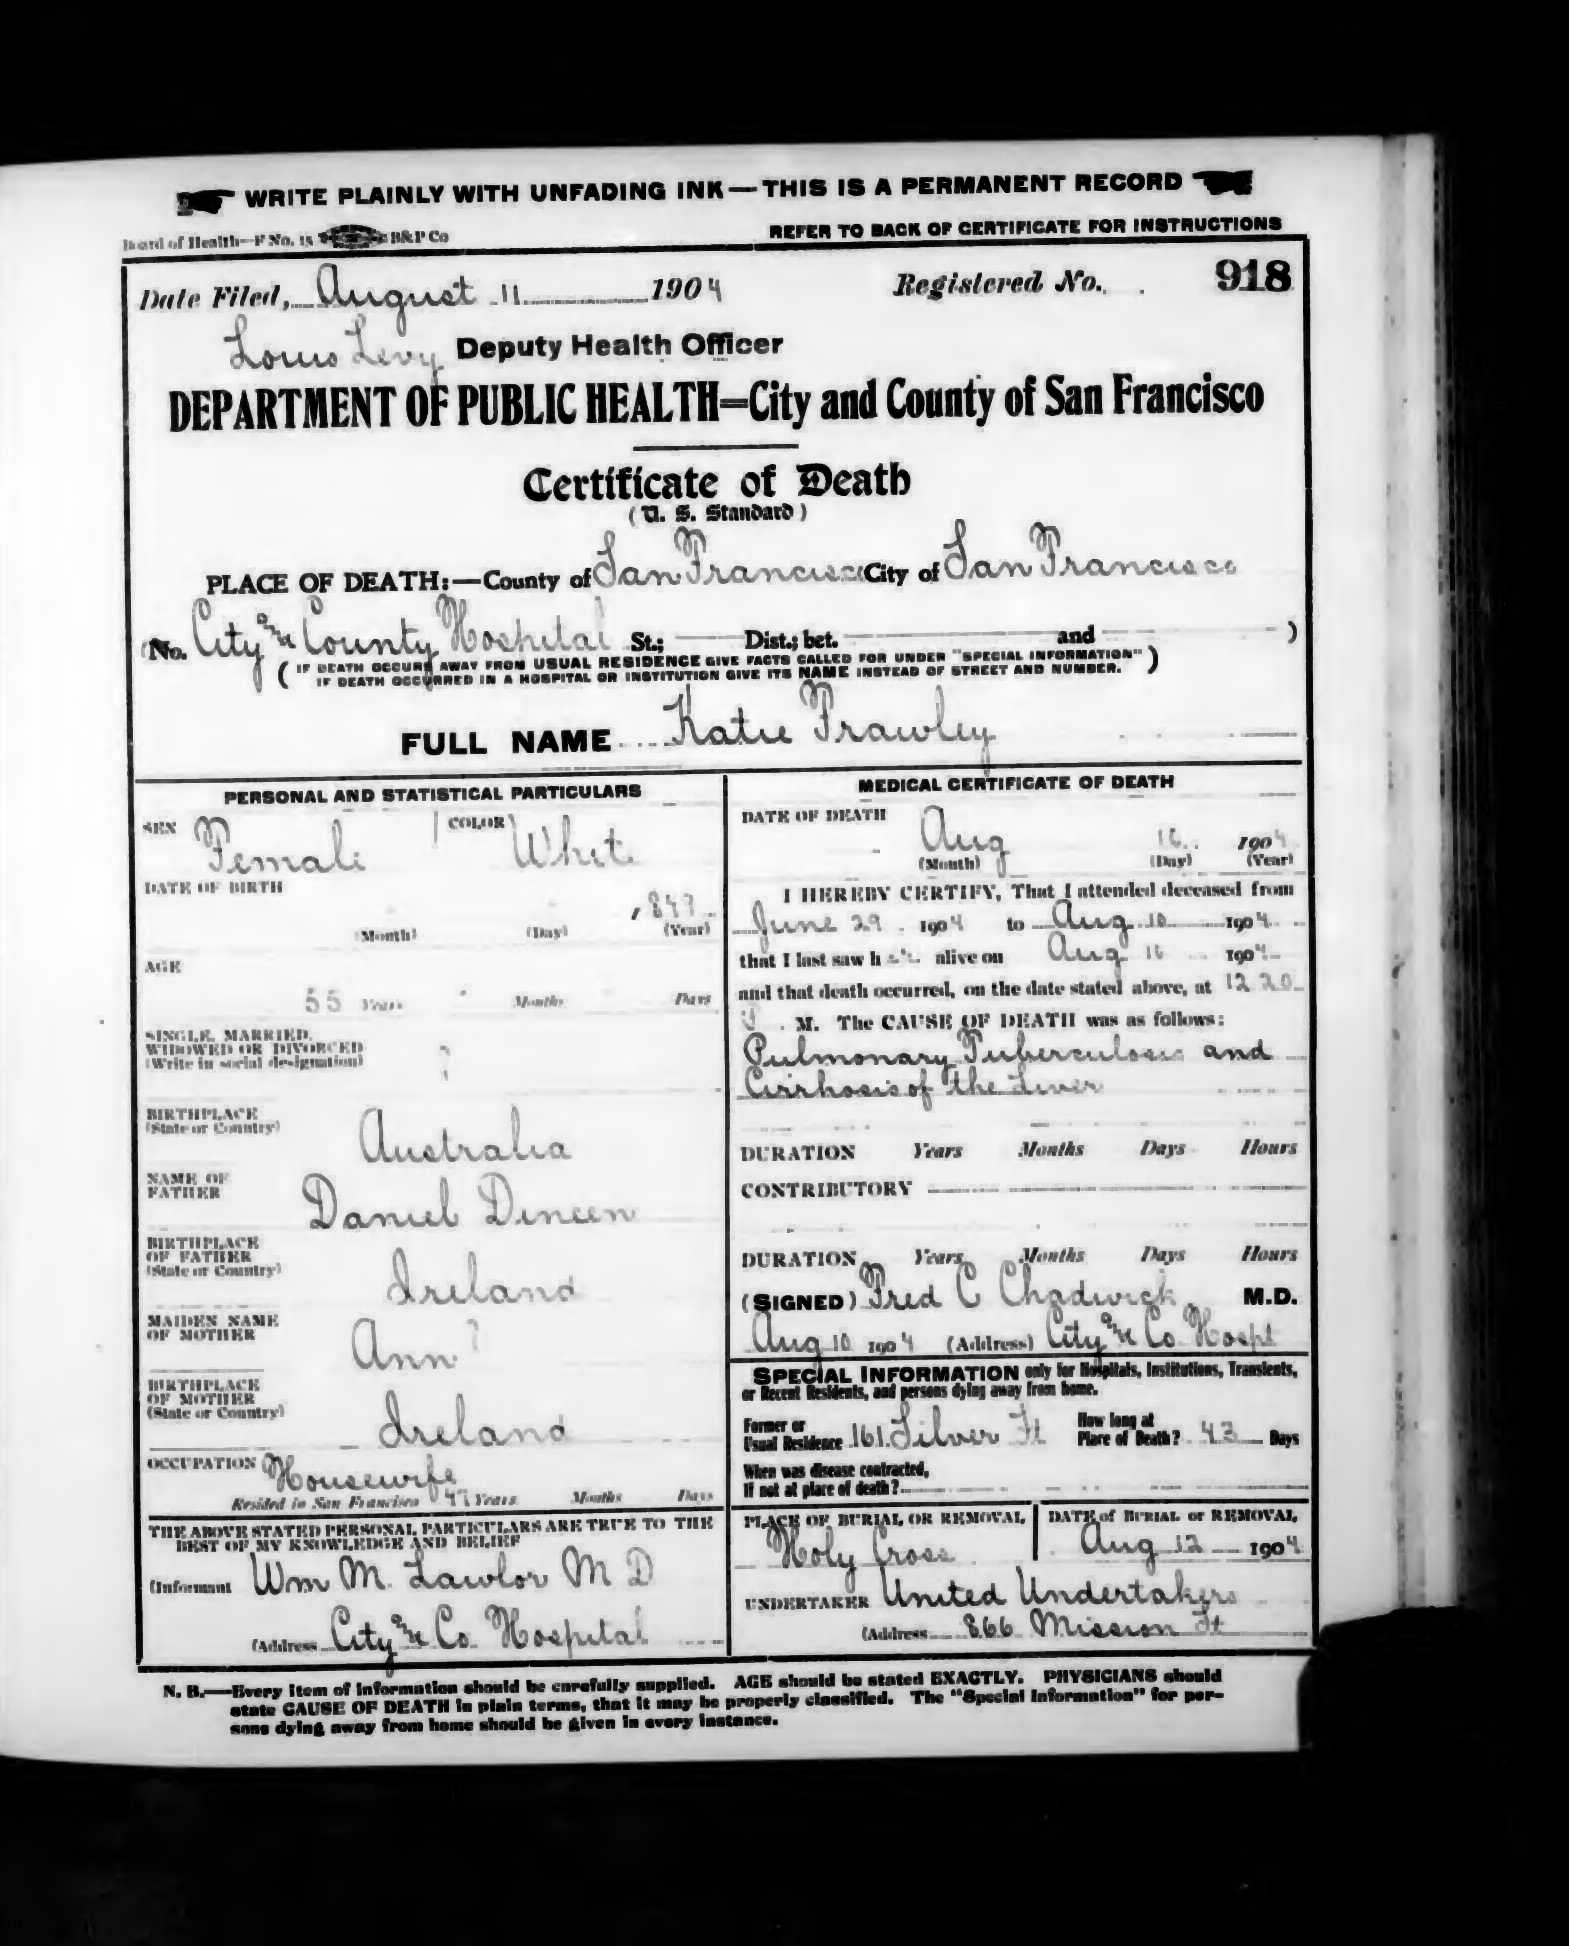 WRITE PLAINLY WITH UNFADING INK—THIS IS A PERMANENT RECORD
Board of Health—F No. 15 B&P Co
REFER TO BACK OF CERTIFICATE FOR INSTRUCTIONS
Date Filed, August 11 1904 Registered No. 918
Louis Levy Deputy Health Officer
DEPARTMENT OF PUBLIC HEALTH=City and County of San Francisco
Certificate of Death
(U. S. Standard)
PLACE OF DEATH:—County of San Francisco City of San Francisco
(No. City and County Hospital St.; Dist.; bet. and )
(IF DEATH OCCURS AWAY FROM USUAL RESIDENCE GIVE FACTS CALLED FOR UNDER "SPECIAL INFORMATION"
IF DEATH OCCURRED IN A HOSPITAL OR INSTITUTION GIVE ITS NAME INSTEAD OF STREET AND NUMBER.)
FULL NAME Katie Frawley
PERSONAL AND STATISTICAL PARTICULARS
SEX Female COLOR White
DATE OF BIRTH
1849
(Month) (Day) (Year)
AGE
55 Years Months Days
SINGLE, MARRIED,
WIDOWED OR DIVORCED ?
(Write in social designation)
BIRTHPLACE
(State or Country) Australia
NAME OF
FATHER Daniel Dineen
BIRTHPLACE
OF FATHER
(State or Country) Ireland
MAIDEN NAME
OF MOTHER Ann ?
BIRTHPLACE
OF MOTHER
(State or Country) Ireland
OCCUPATION Housewife
Resided in San Francisco 47 Years Months Days
THE ABOVE STATED PERSONAL PARTICULARS ARE TRUE TO THE
BEST OF MY KNOWLEDGE AND BELIEF
(Informant Wm M. Lawlor M D
(Address City and Co. Hospital
MEDICAL CERTIFICATE OF DEATH
DATE OF DEATH
Aug 10 1904
(Month) (Day) (Year)
I HEREBY CERTIFY, That I attended deceased from
June 29 1904 to Aug 10 1904
that I last saw h er alive on Aug 10 1904
and that death occurred, on the date stated above, at 12 20
M. The CAUSE OF DEATH was as follows:
Pulmonary Tuberculosis and
Cirrhosis of the Liver
DURATION Years Months Days Hours
CONTRIBUTORY
DURATION Years Months Days Hours
(SIGNED) Fred C Chadwick M.D.
Aug 10 1904 (Address) City and Co. Hospt
SPECIAL INFORMATION only for Hospitals, Institutions, Transients,
or Recent Residents, and persons dying away from home.
Former or
Usual Residence 161 Silver St How long at
Place of Death? 43 Days
When was disease contracted,
If not at place of death?
PLACE OF BURIAL OR REMOVAL DATE of BURIAL or REMOVAL
Holy Cross Aug 12 1904
UNDERTAKER United Undertakers
(Address 866 Mission St
N. B.—Every item of information should be carefully supplied. AGE should be stated EXACTLY. PHYSICIANS should
state CAUSE OF DEATH in plain terms, that it may be properly classified. The "Special Information" for per-
sons dying away from home should be given in every instance.